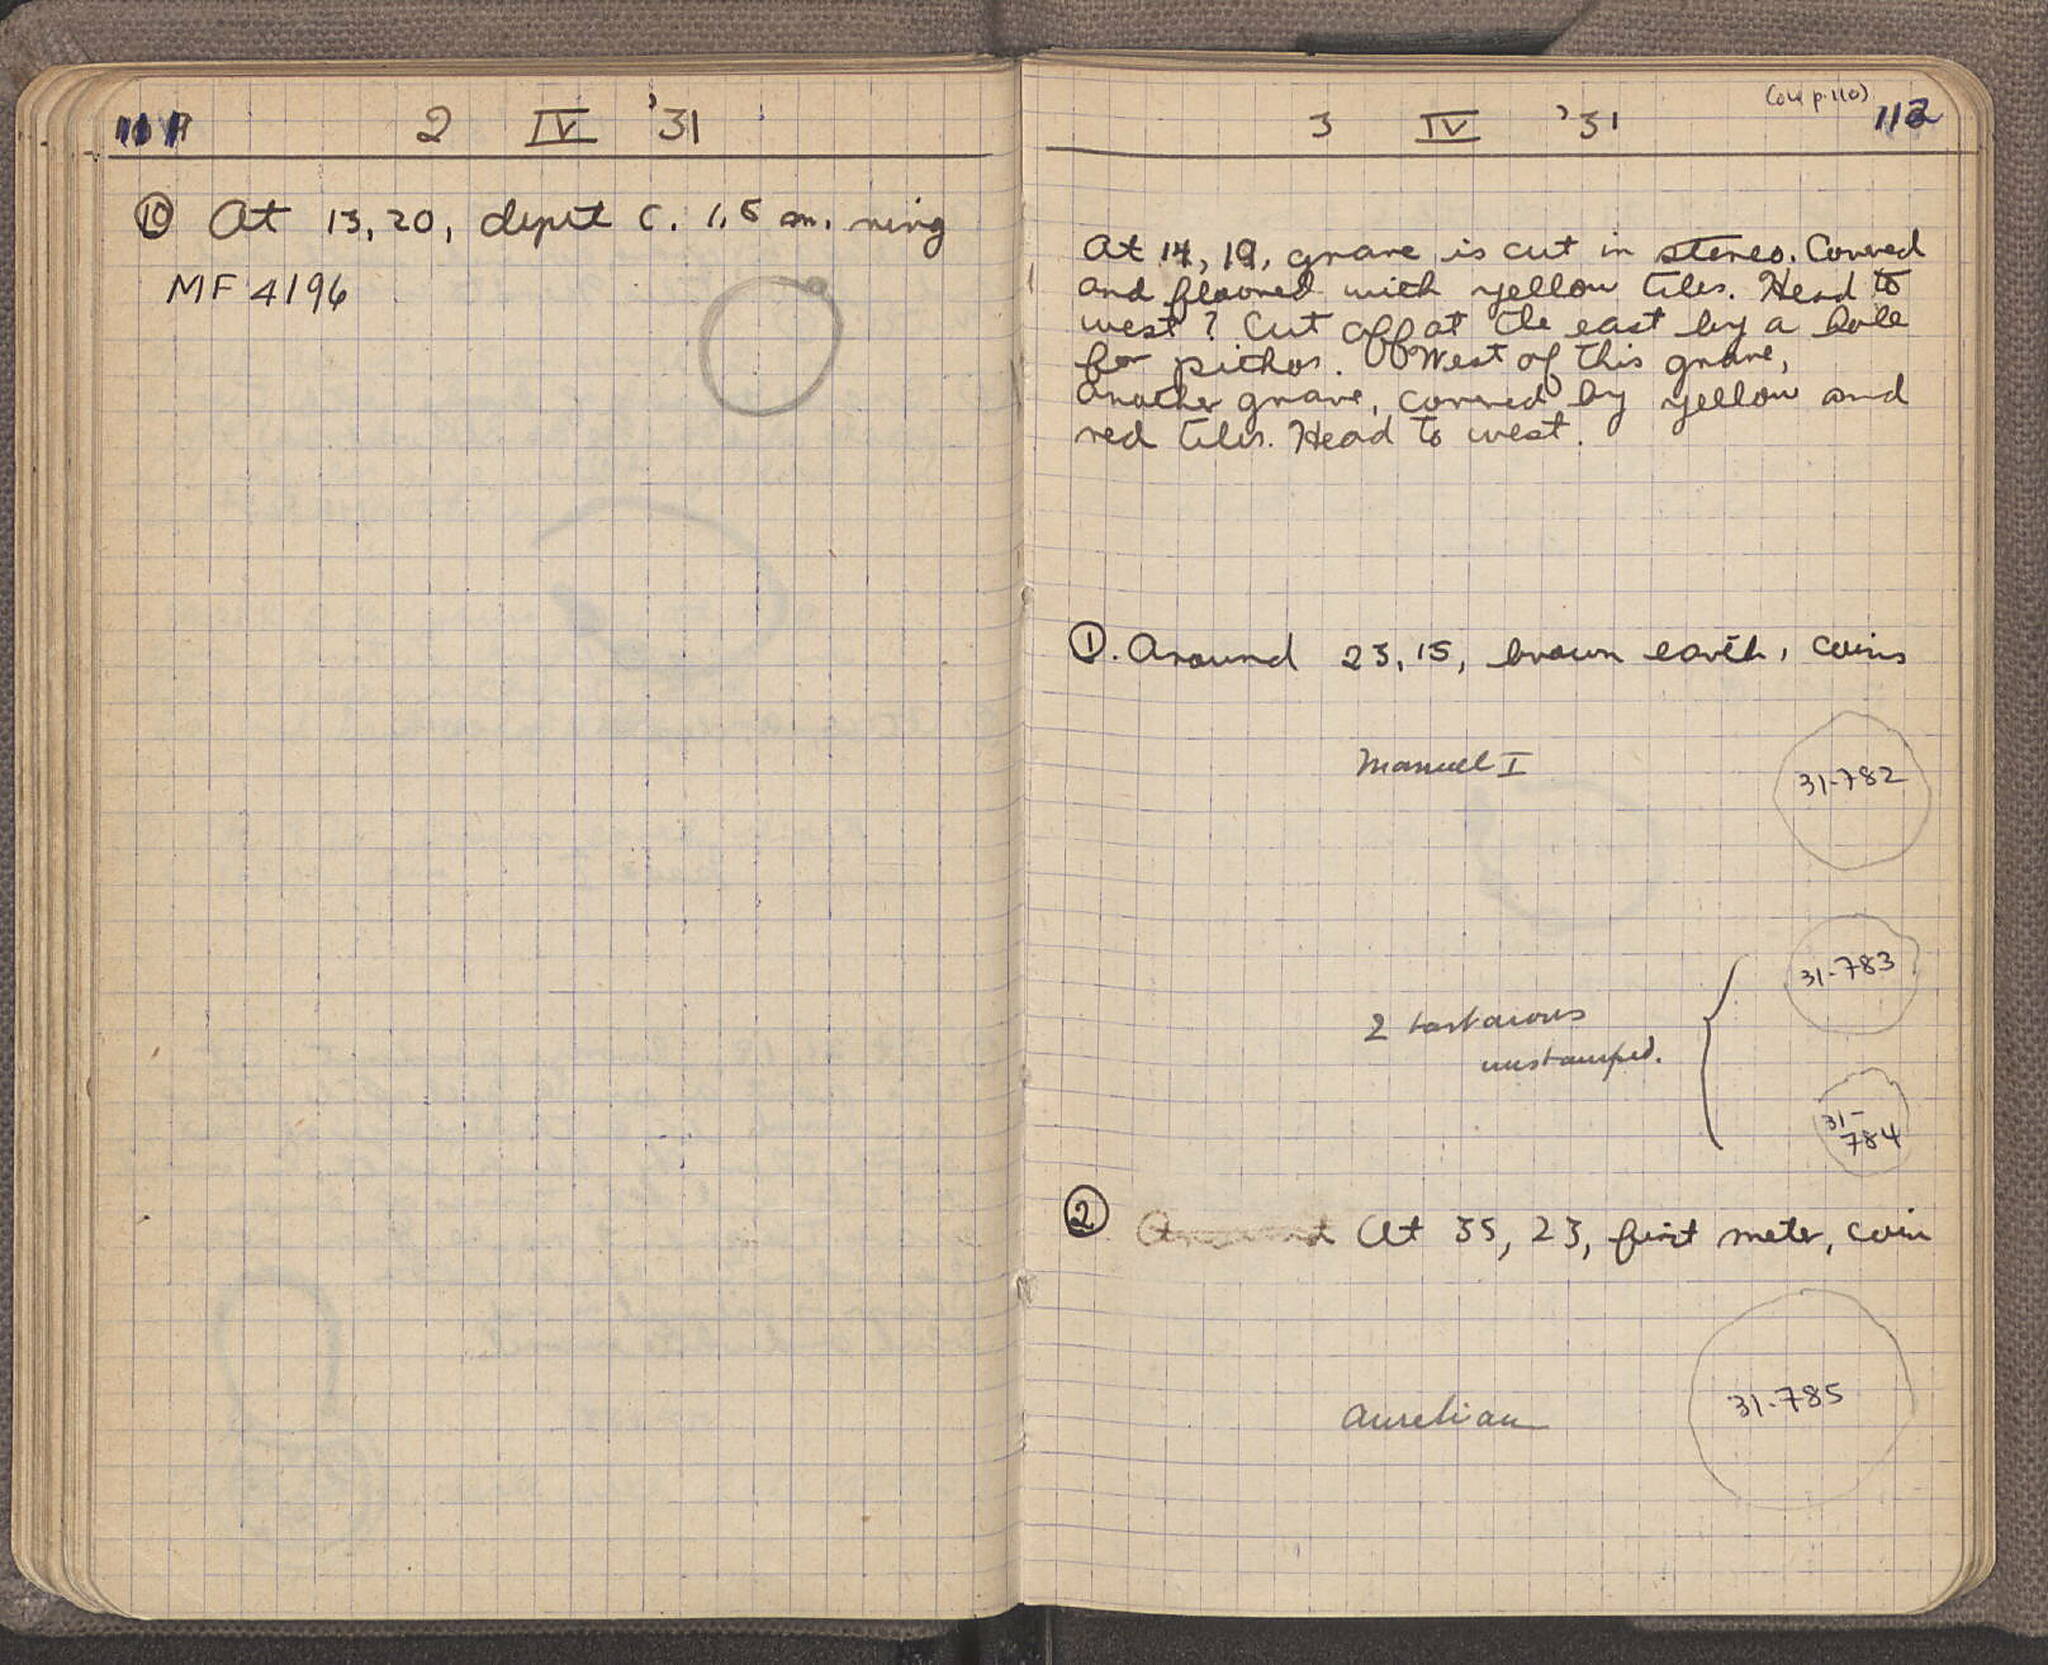 111
2 IV '31
⑩ At 13, 20, depth c. 1,5 m. ring
MF 4196
3 IV '31
(old p. 110)
112
At 14, 19, grave is cut in stereo. Covered
and floored with yellow tiles. Head to
west? Cut off at the east by a hole
for pithos. West of this grave,
another grave, covered by yellow and
red tiles. Head to west.
①. Around 23, 15, brown earth, coins
Manuel I
31-782
31-783
2
unstamped.
31-
784
② Around At 35, 23, first meter, coin
Aurelian
31-785